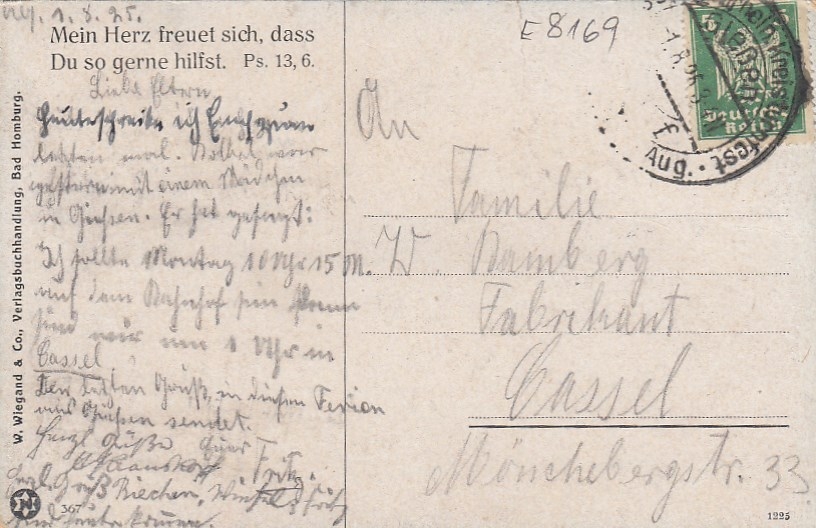 1. 8. 25.
Mein Herz freuet sich, dass
Du so gerne hilfst. Ps. 13, 6.
Liebe Eltern
Heute schreibe ich Euch zum
letzten mal. war
gestern mit einem Mädchen
in Giessen. Er hat gesagt:
Ich sollte Montag 10 Uhr 15 M.
auf dem Bahnhof sein
sind wir um 1 Uhr in
Cassel
Den letzten Gruß, in diesen Ferien
aus Giessen sendet.
Herzl. Grüße Euer
Fritz.
Herzl. Gruß
W. Wiegand & Co., Verlagsbuchhandlung, Bad Homburg.
367
E 8169
Deutsches
Reich
Giessen
1.8.25
Aug.
An
Familie
W. Bamberg
Fabrikant
Cassel
Mönchebergstr. 33
1225